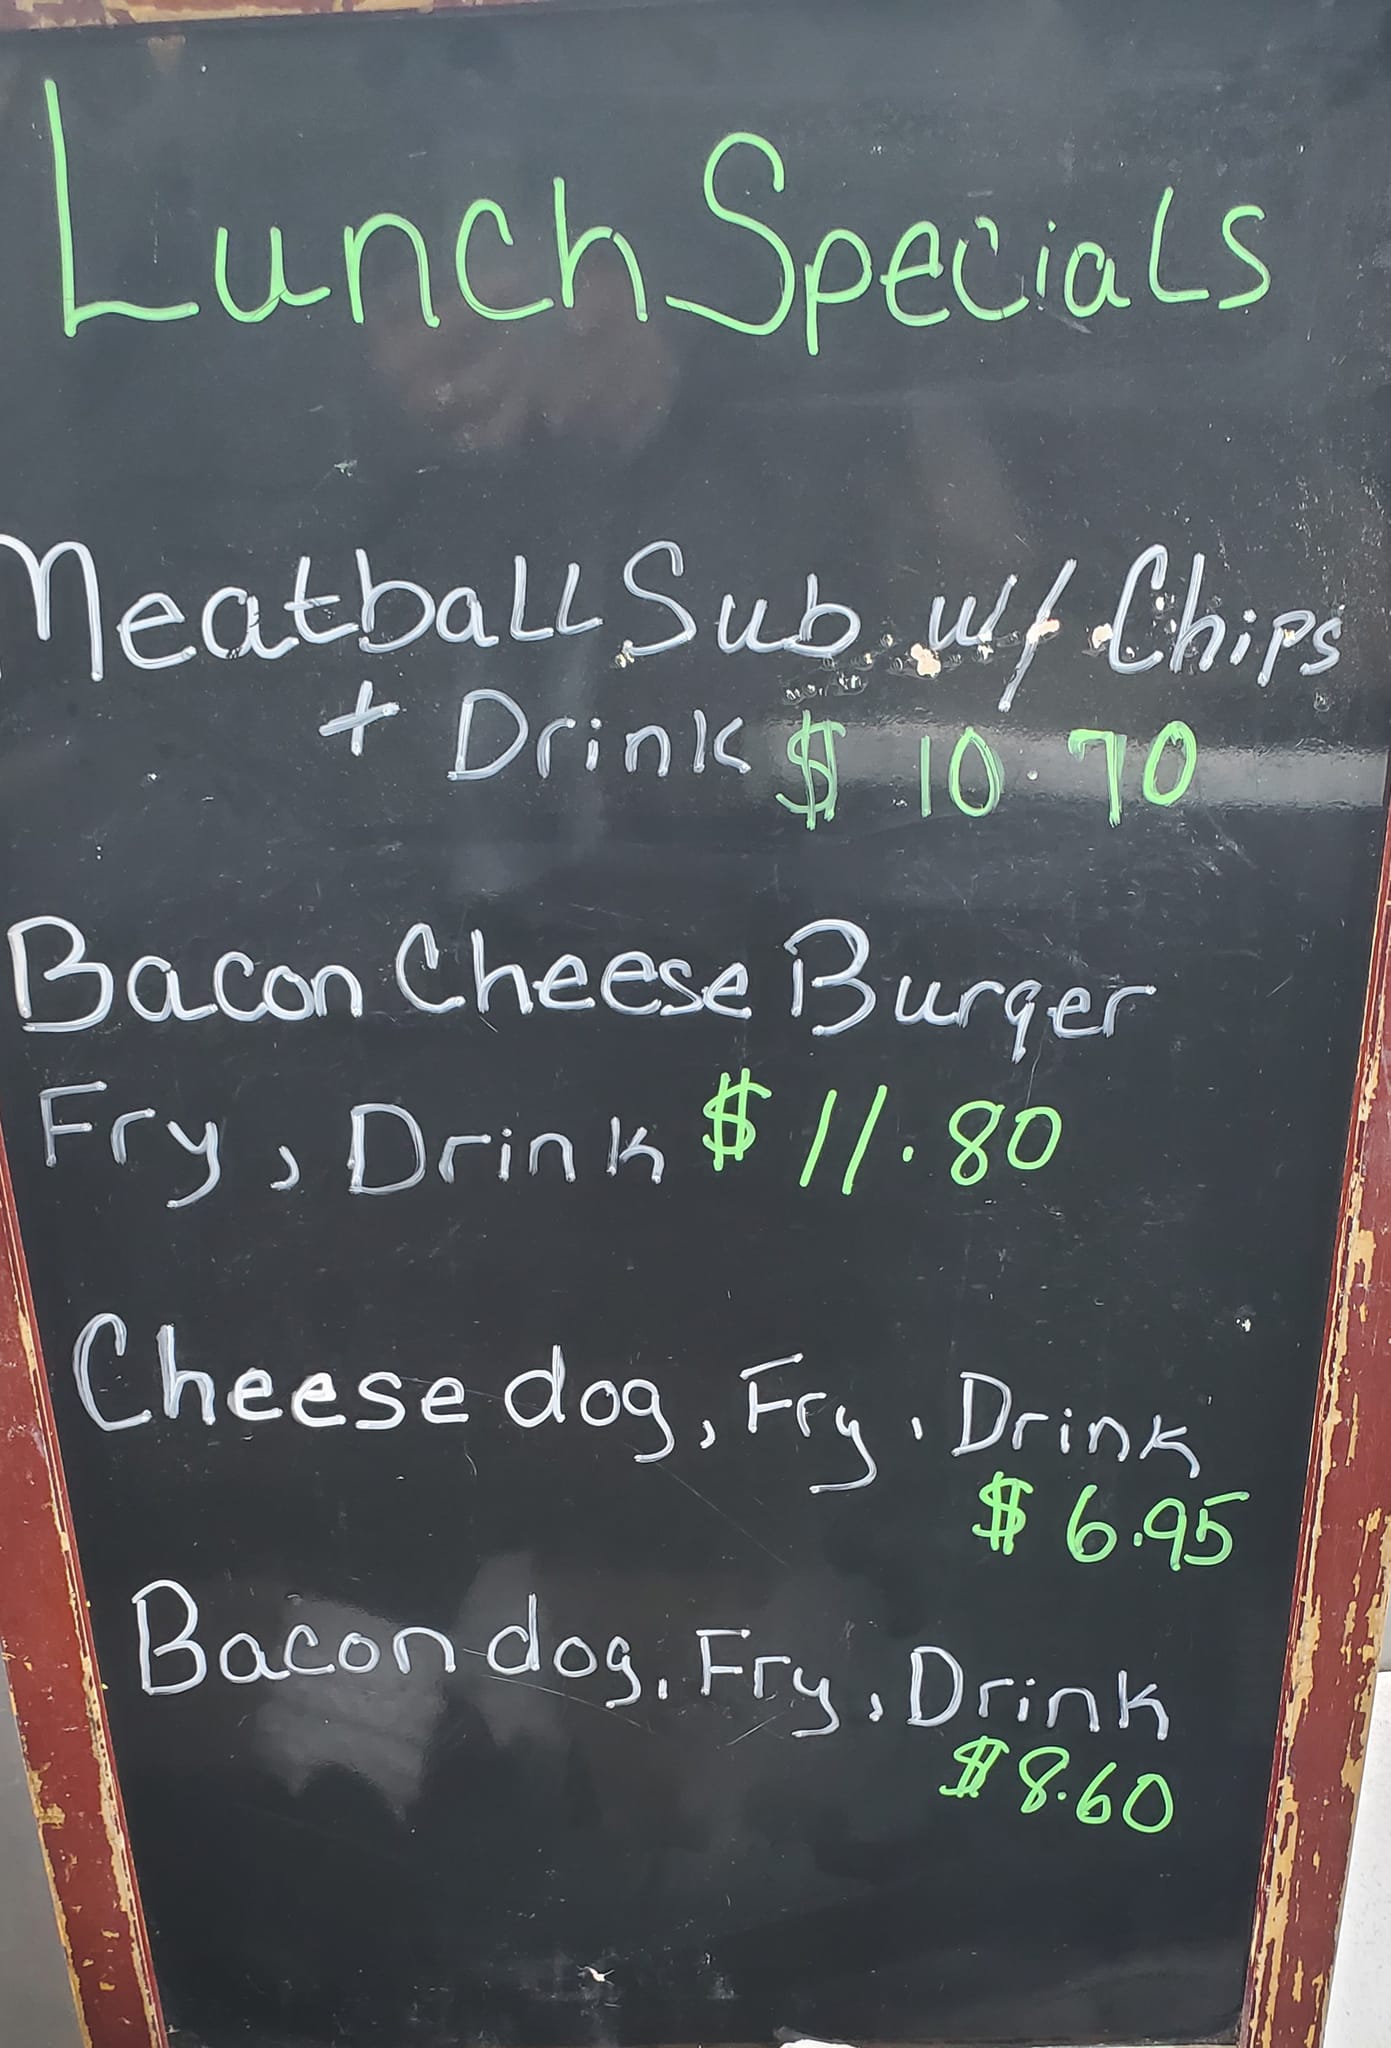 Lunch Specials
Meatball Sub w/ Chips
+ Drink $ 10.70
Bacon Cheese Burger
Fry, Drink $ 11.80
Cheese dog, Fry, Drink
$ 6.95
Bacon dog, Fry, Drink
$8.60